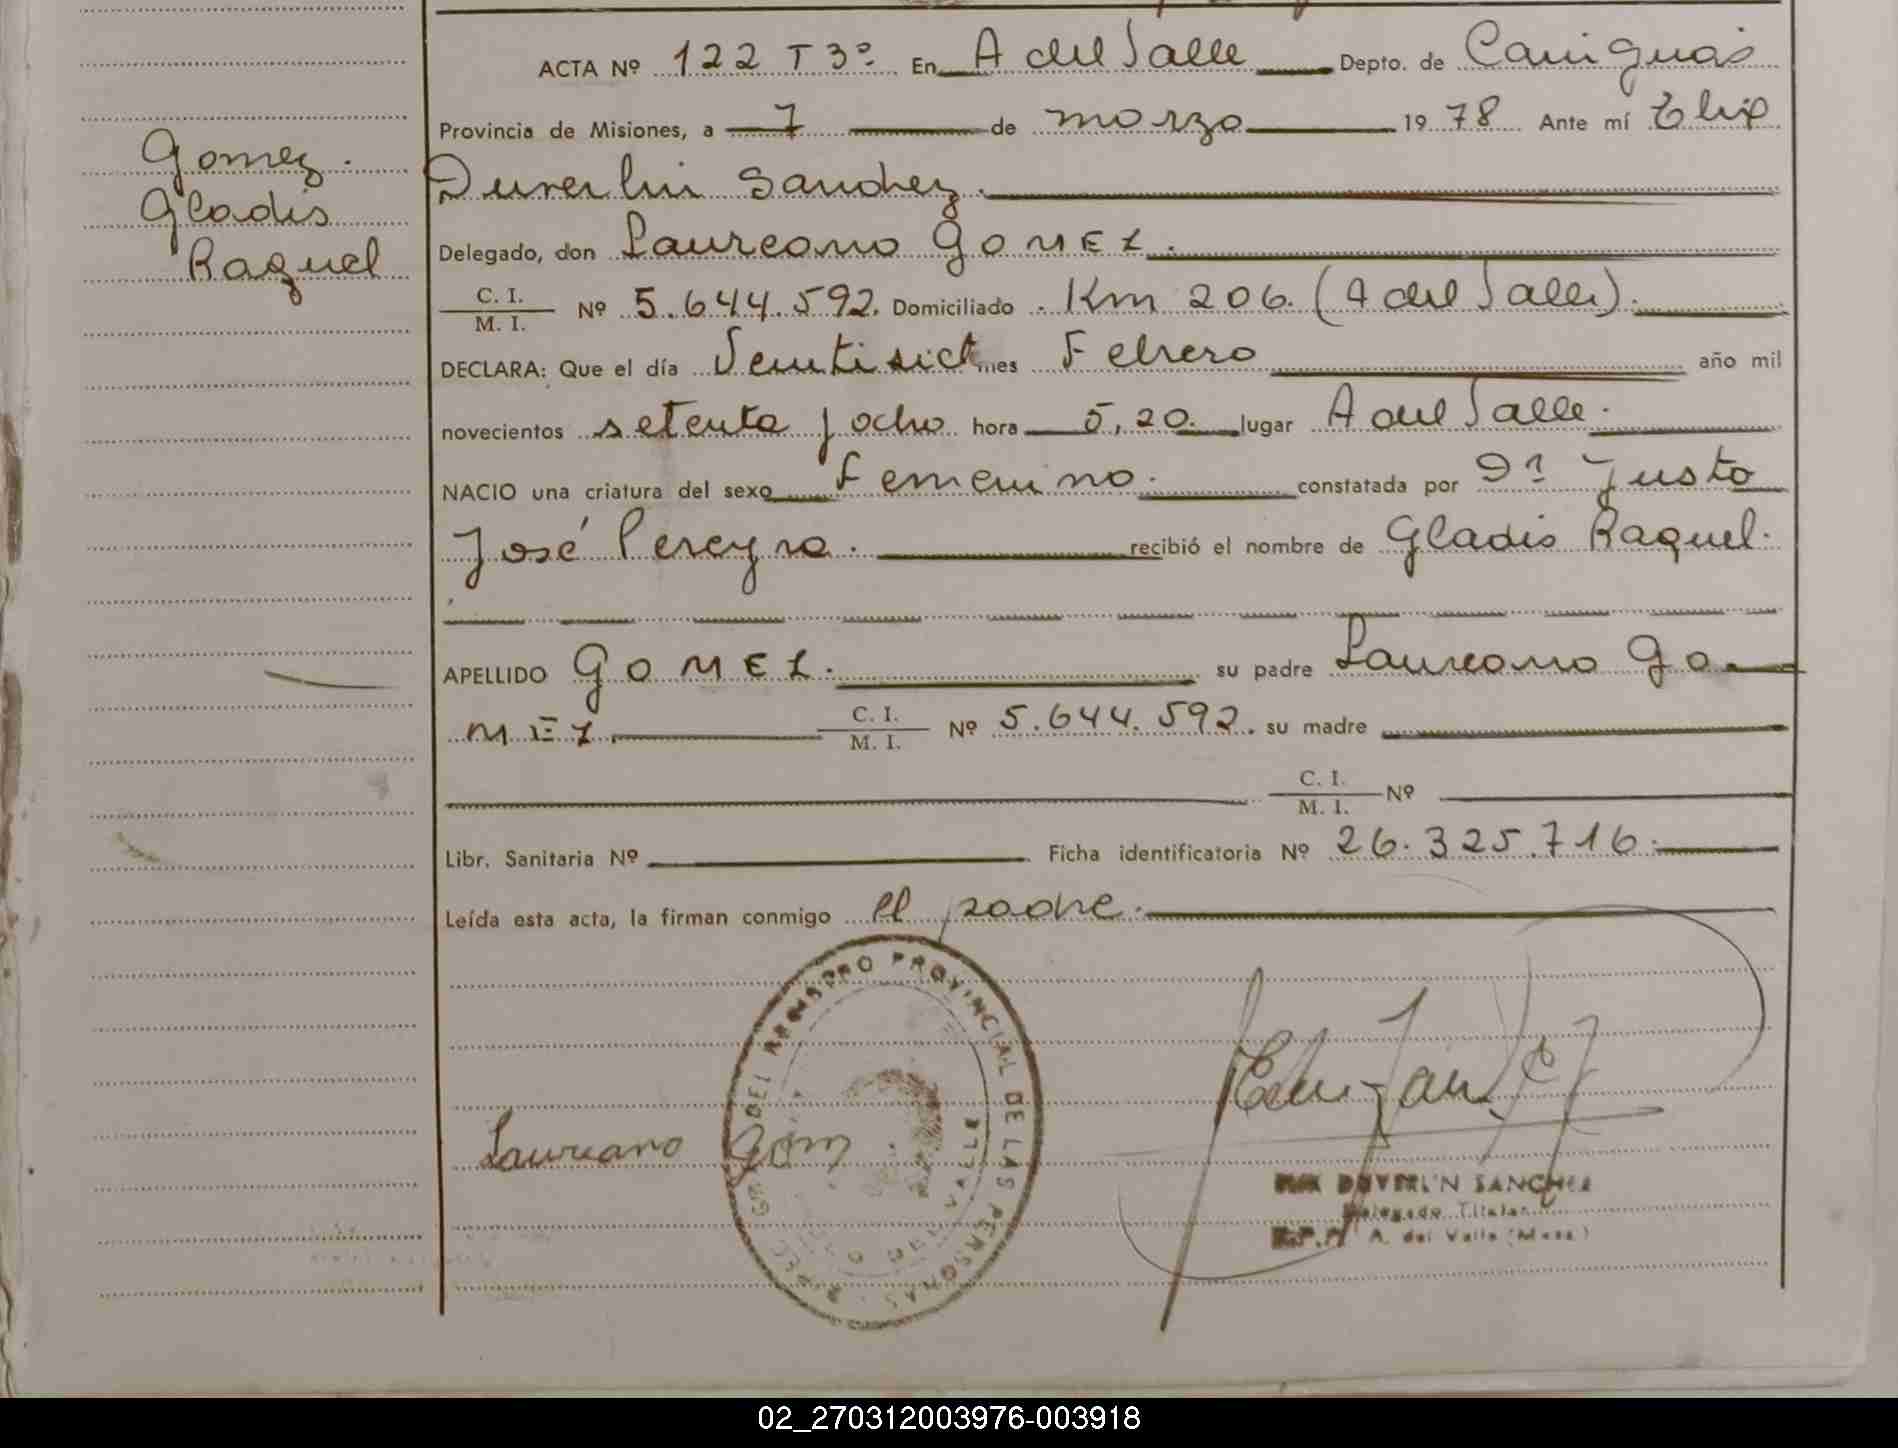 Gomez.
Gladis
Raquel
ACTA Nº 122 T 3º En A del Valle Depto. de Cainguás
Provincia de Misiones, a 7 de marzo 1978 Ante mí Elix
Duverlin Sanchez.
Delegado, don Laureano GOMEZ.
C. I.
M. I. Nº 5.644.592. Domiciliado Km 206. (A del Valle).
DECLARA: Que el día Veintisiet mes Febrero año mil
novecientos setenta y ocho hora 5,20. lugar A del Valle.
NACIO una criatura del sexo Femenino. constatada por Justo
José Pereyra. recibió el nombre de Gladis Raquel.
APELLIDO GOMEZ. su padre Laureano Go
MEZ. C. I.
M. I. Nº 5.644.592. su madre
C. I.
M. I. Nº
Libr. Sanitaria Nº Ficha identificatoria Nº 26.325.716.
Leída esta acta, la firman conmigo el padre.
DEL REGISTRO PROVINCIAL DE LAS PERSONAS
DEL VALLE
Laureano Gom
DUVERLIN SANCHEZ
Delegado Titular
A. del Valle (Mnes)
02_270312003976-003918